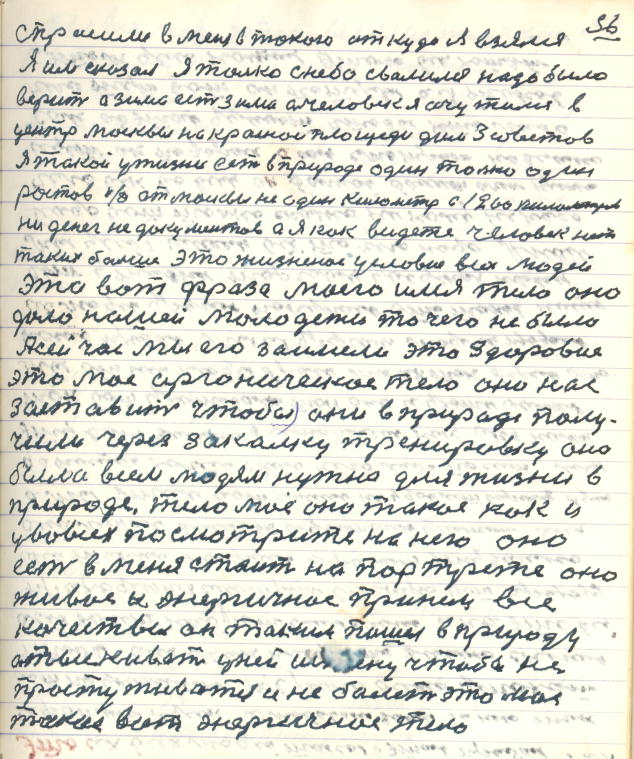 36
спросили в меня в токого откуда я взялся
Я им сказал я толко снеба свалился надо було
верит азима ест зима ачеловек я очутился в
центр москвы на красной площеди дом 3 советов
я такой ужизни ест в природе один толко один
ростов н/д от москвы не один километр а 1200 километров
ни денег не документов а я как видете человек нет
таких болше это жизненое условие всех людей
Это вот фраза моего имя тело оно
дало нашей молодежи то чего не було
А сей час мы его заимели это здоровие
это мое органическое тело оно нас
заставит чтобы они в природе полу-
чили через закалку тренировку оно
была всем людям нужна для жизни в
природе. тело моё оно такое как и
увовсех посмотрите на него оно
ест в меня стоит на портрете оно
живое и энергичное при нем все
качества он таким пошел в природу
отыскиват уней чтобы не
простуживатся и не болет это мое
такое вот энергичное тело